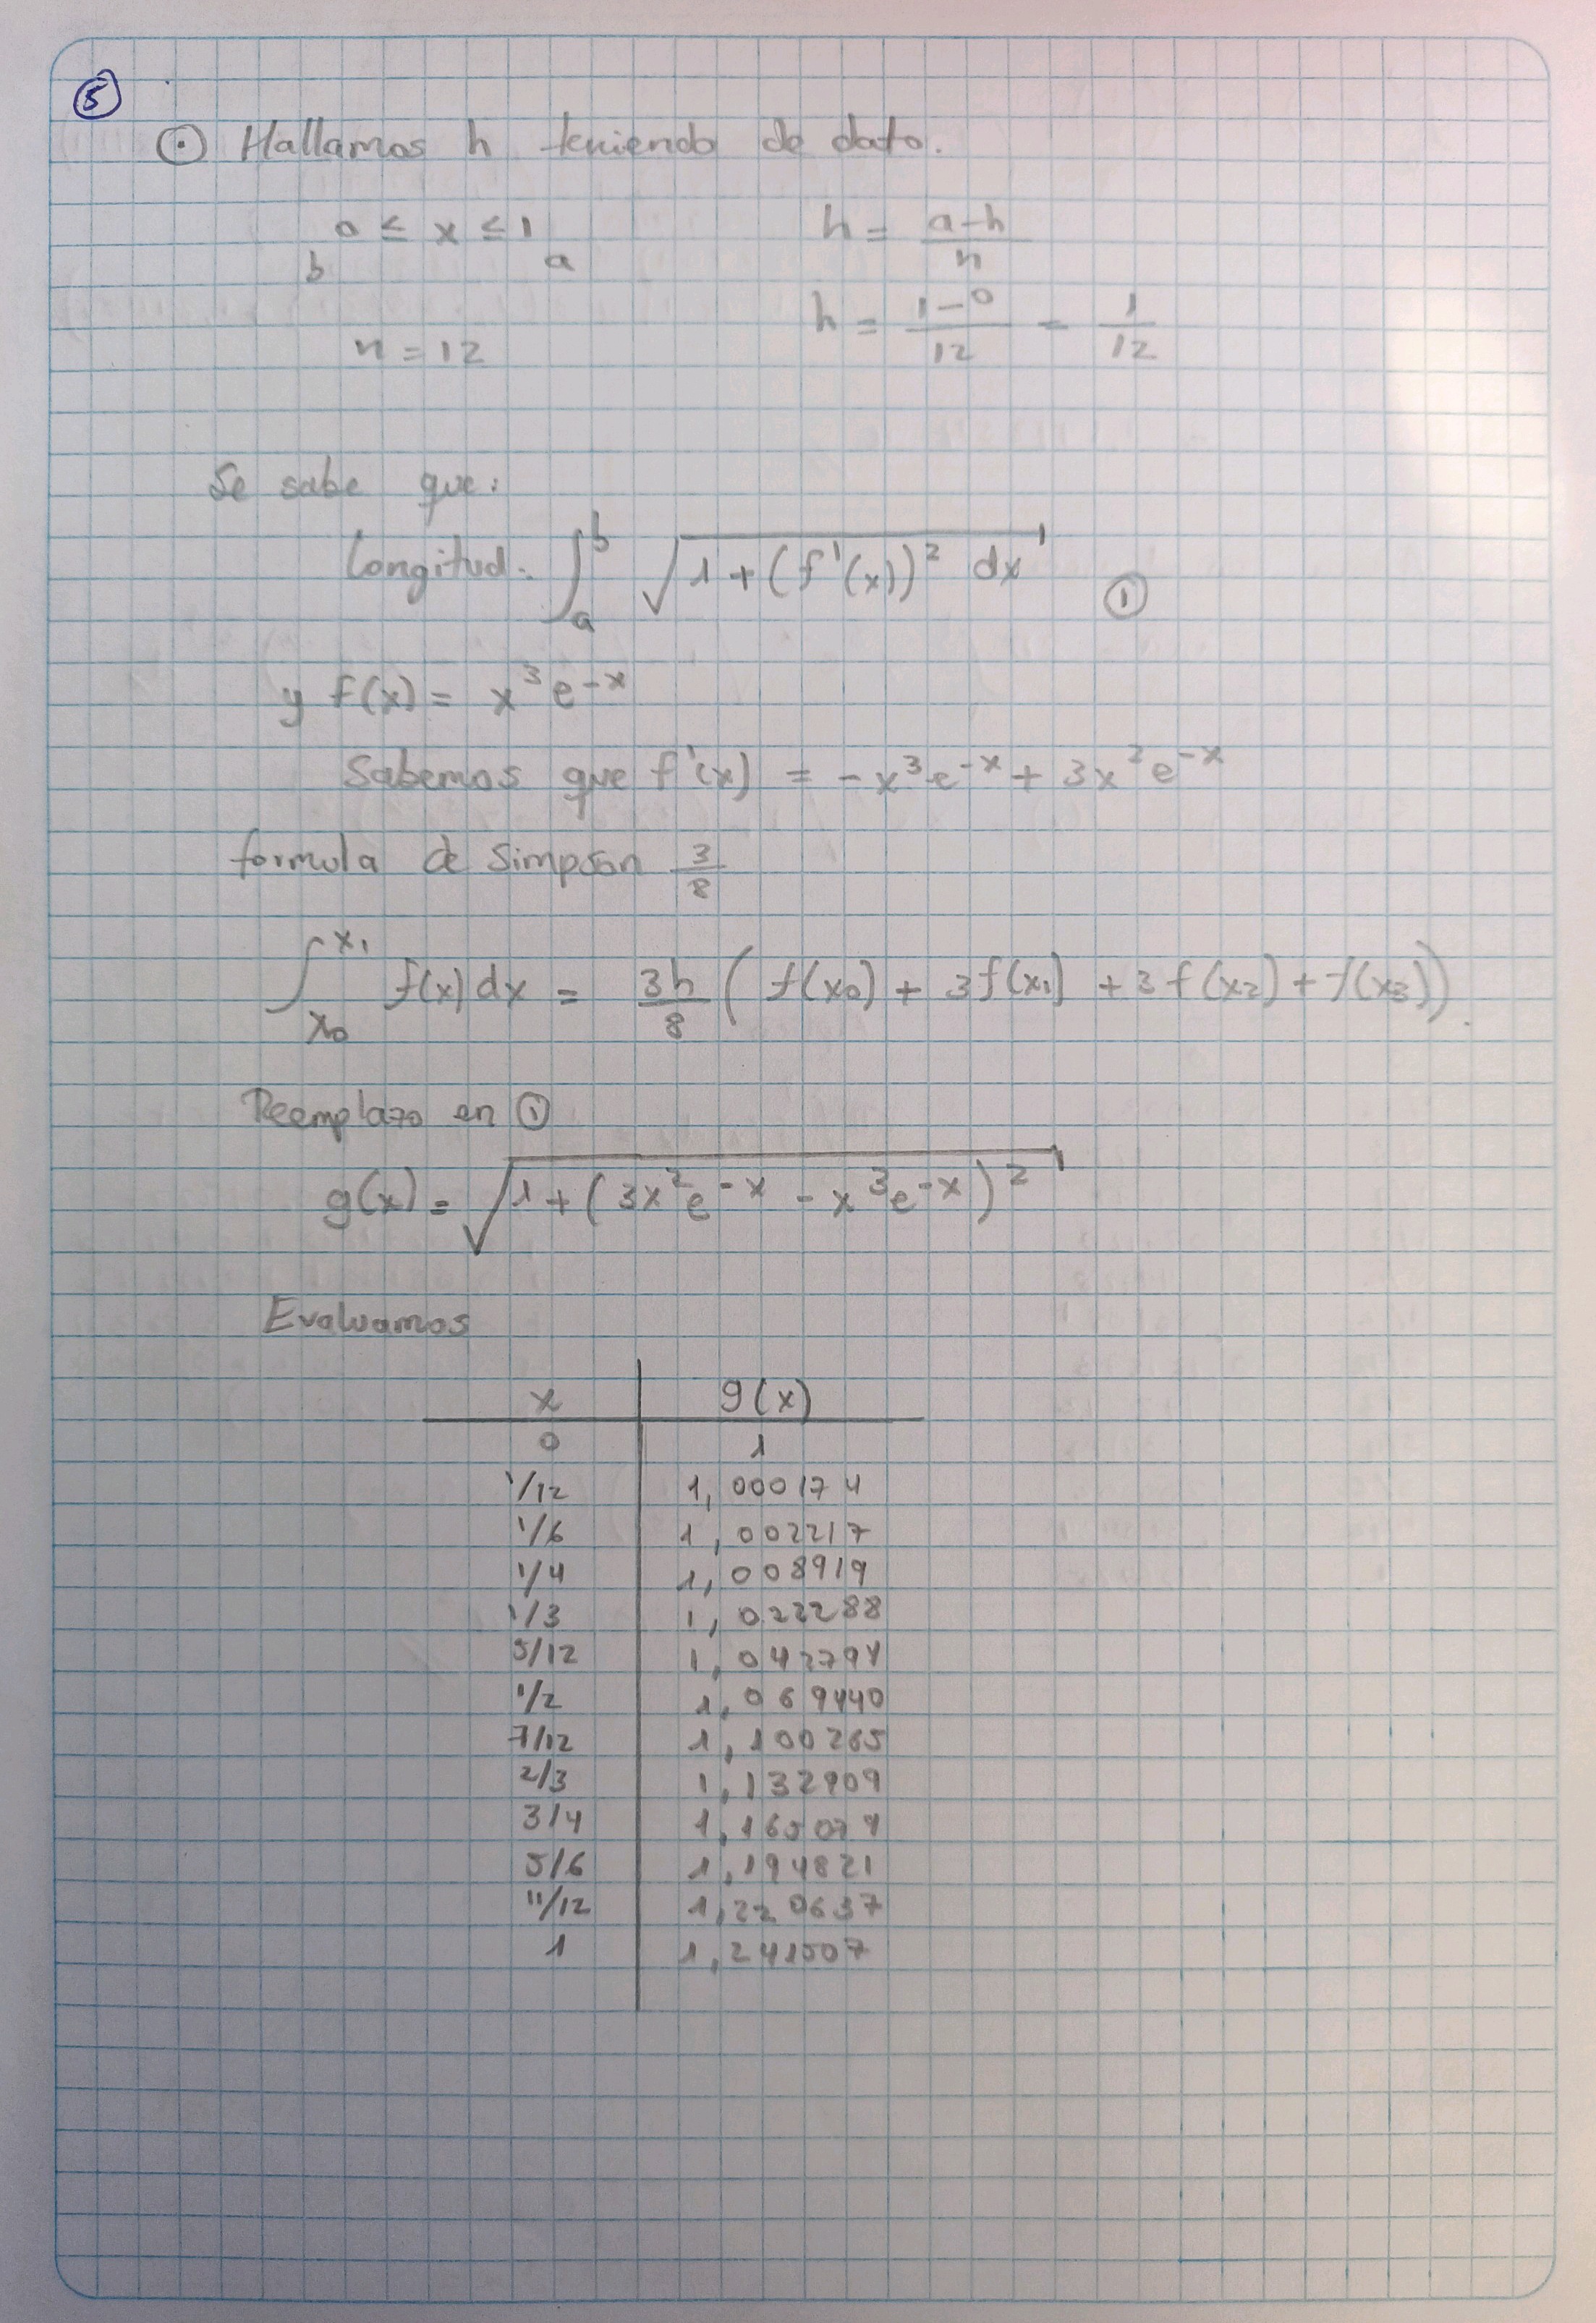 5
⊙ Hallamos h teniendo de dato.
0 ≤ x ≤ 1
b a
h = a-h / n
n = 12
h = 1-0 / 12 = 1/12
Se sabe que:
Longitud: ∫_a^b √(1+(f'(x))² dx) ①
y f(x) = x³e^-x
Sabemos que f'(x) = -x³e^-x + 3x²e^-x
formula de Simpson 3/8
∫_x₀^x₁ f(x)dx = 3h/8 ( f(x₀) + 3f(x₁) + 3f(x₂) + f(x₃))
Reemplazo en ①
g(x) = √(1+(3x²e^-x - x³e^-x)²)
Evaluamos
x g(x)
0 1
1/12 1,000174
1/6 1,002217
1/4 1,008919
1/3 1,022288
5/12 1,042794
1/2 1,069440
7/12 1,100265
2/3 1,132909
3/4 1,165074
5/6 1,194821
11/12 1,220637
1 1,241507